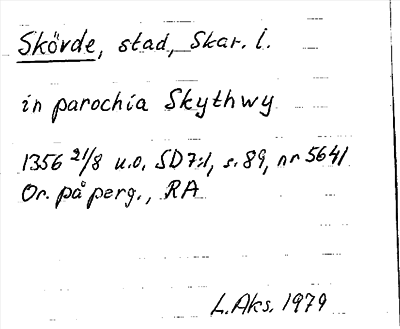 Skövde, stad, Skar. l.
in parochia Skythwy
1356 21/8 u.o. SD7:1, s. 89, nr 5641
Or. på perg., RA
L. Aks. 1979